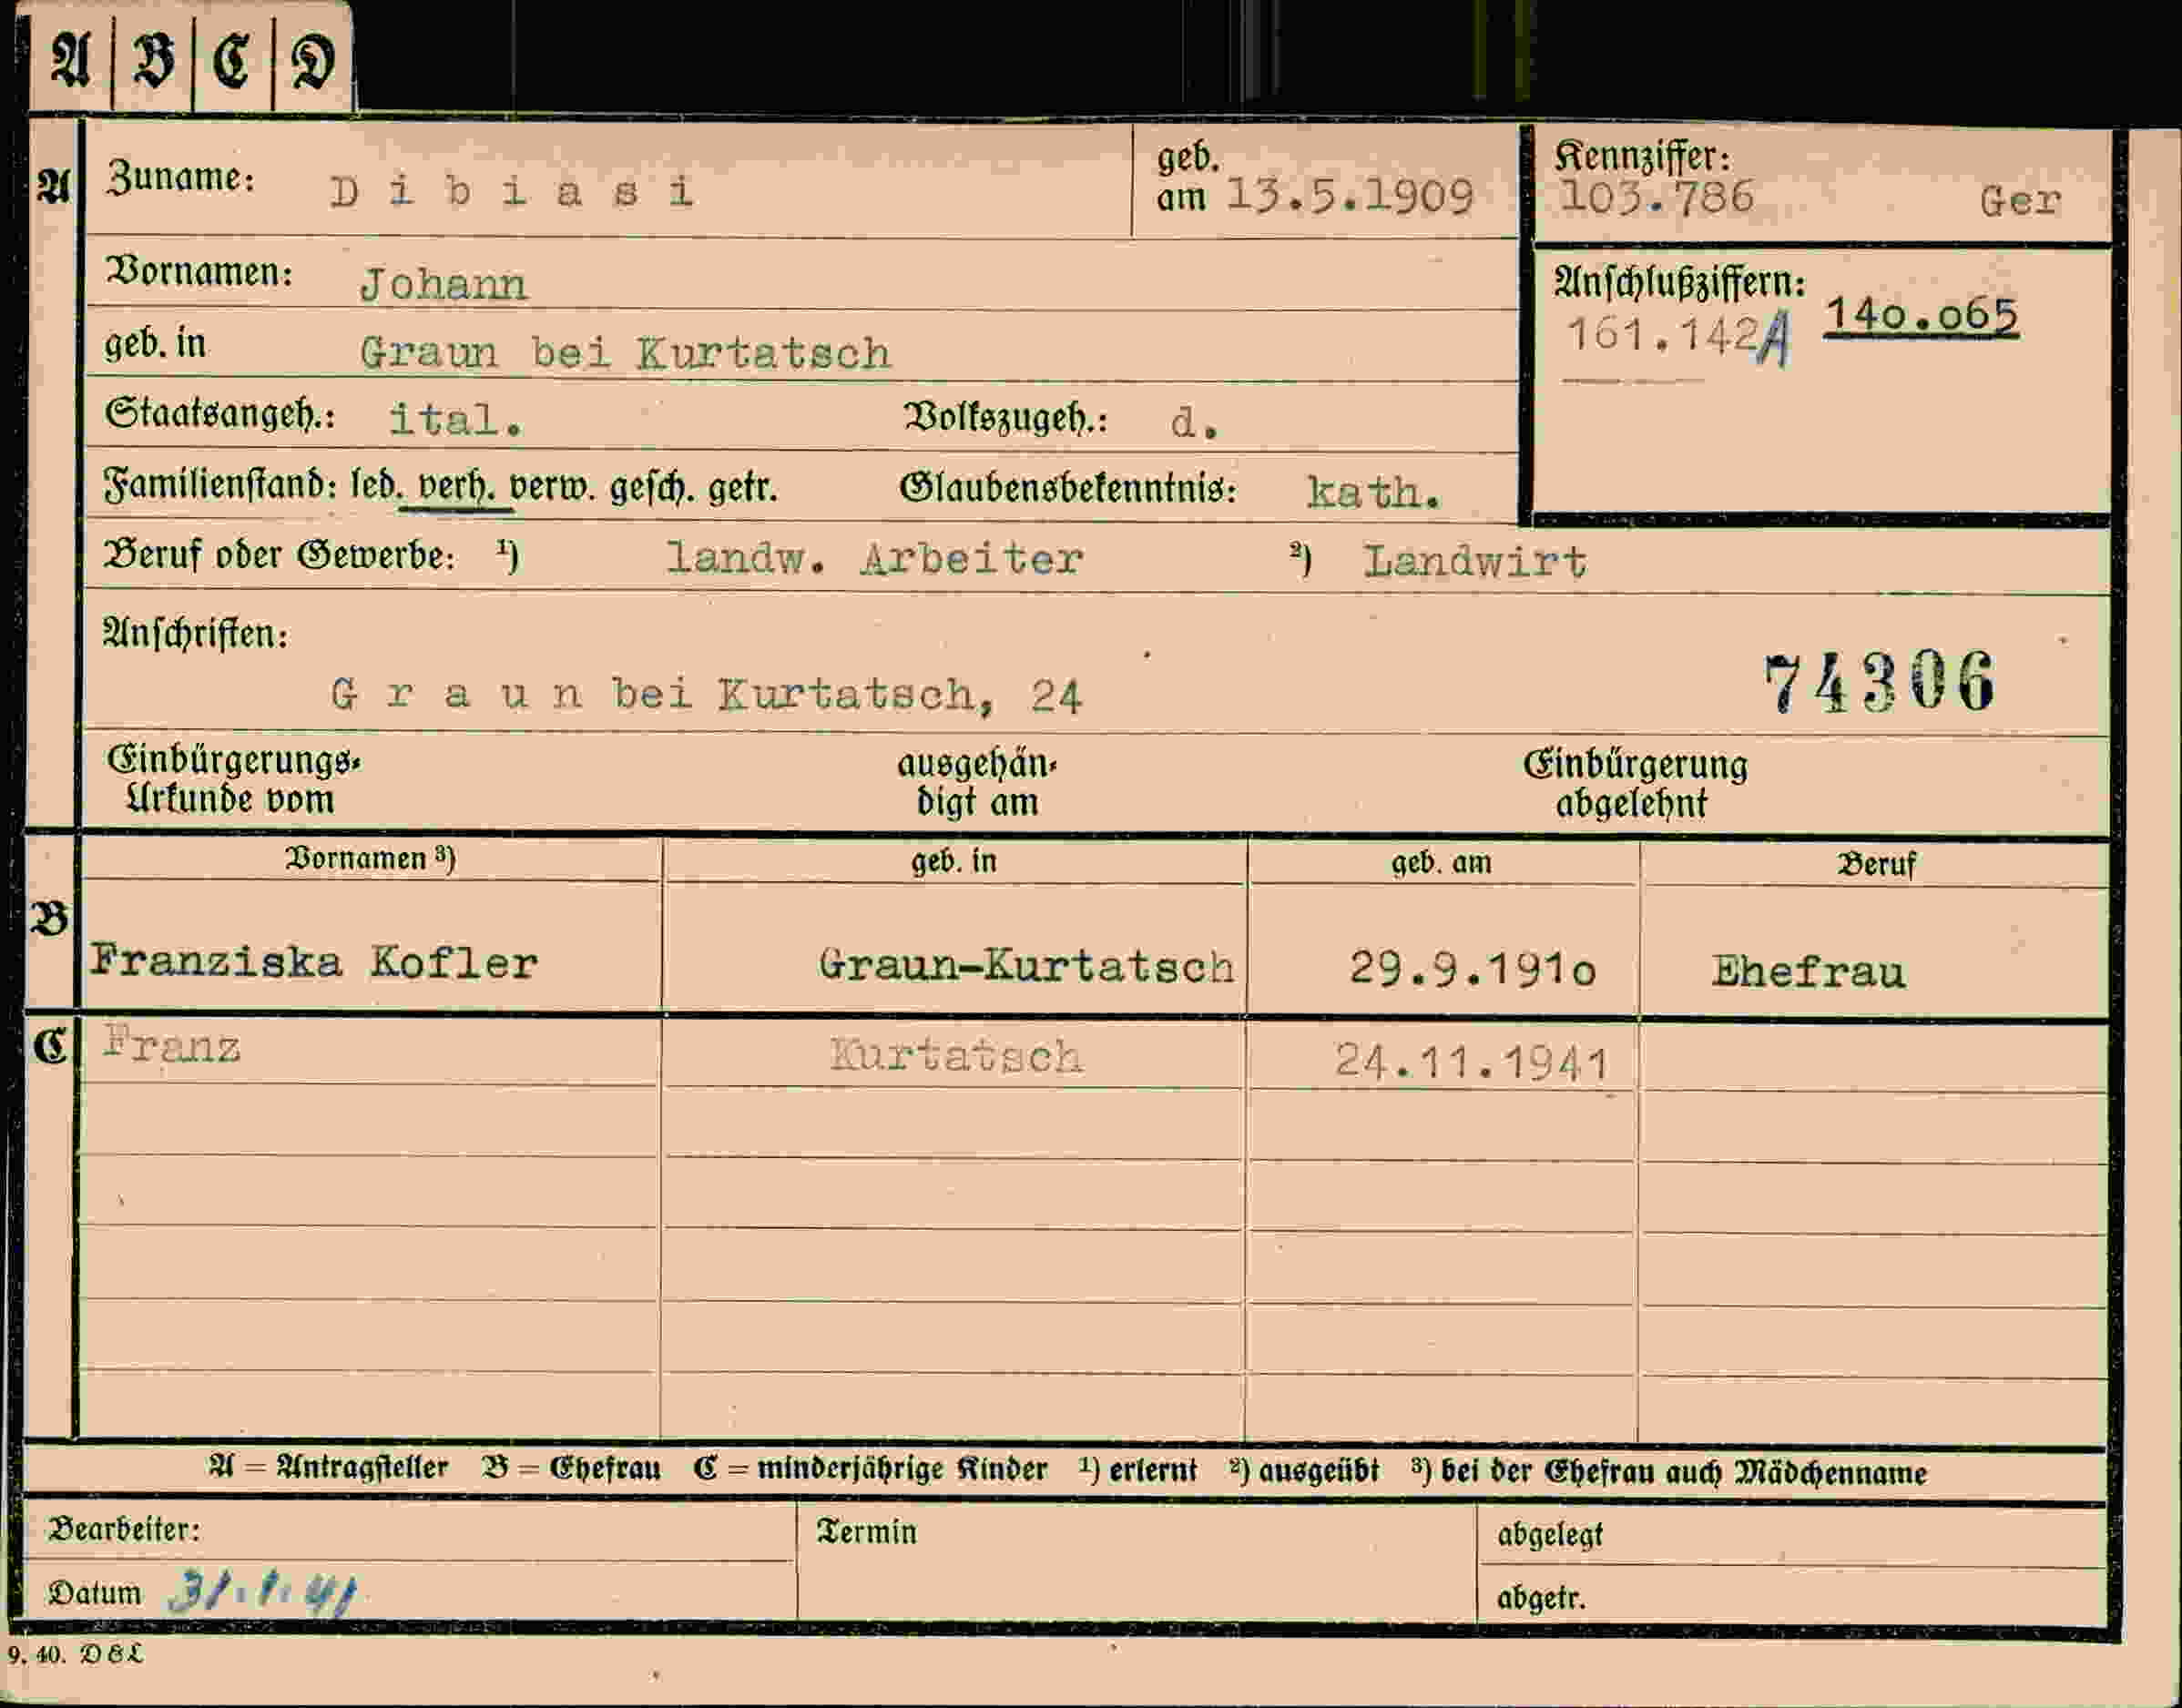 A B C D
A Zuname: Dibiasi geb. am 13.5.1909 Kennziffer: 103.786 Ger
Vornamen: Johann
Anschlußziffern: 161.142A 14o.o65
geb. in Graun bei Kurtatsch
Staatsangeh.: ital. Volkszugeh.: d.
Familienstand: led. verh. verw. gesch. getr. Glaubensbekenntnis: kath.
Beruf oder Gewerbe: ¹) landw. Arbeiter ²) Landwirt
Anschriften:
Graun bei Kurtatsch, 24 74306
Einbürgerungs-Urkunde vom ausgehän-digt am Einbürgerung abgelehnt
Vornamen ³) geb. in geb. am Beruf
B Franziska Kofler Graun-Kurtatsch 29.9.191o Ehefrau
C Franz Kurtatsch 24.11.1941
A = Antragsteller B = Ehefrau C = minderjährige Kinder ¹) erlernt ²) ausgeübt ³) bei der Ehefrau auch Mädchenname
Bearbeiter: Termin abgelegt
Datum 31.1.41 abgetr.
9. 40. D&L